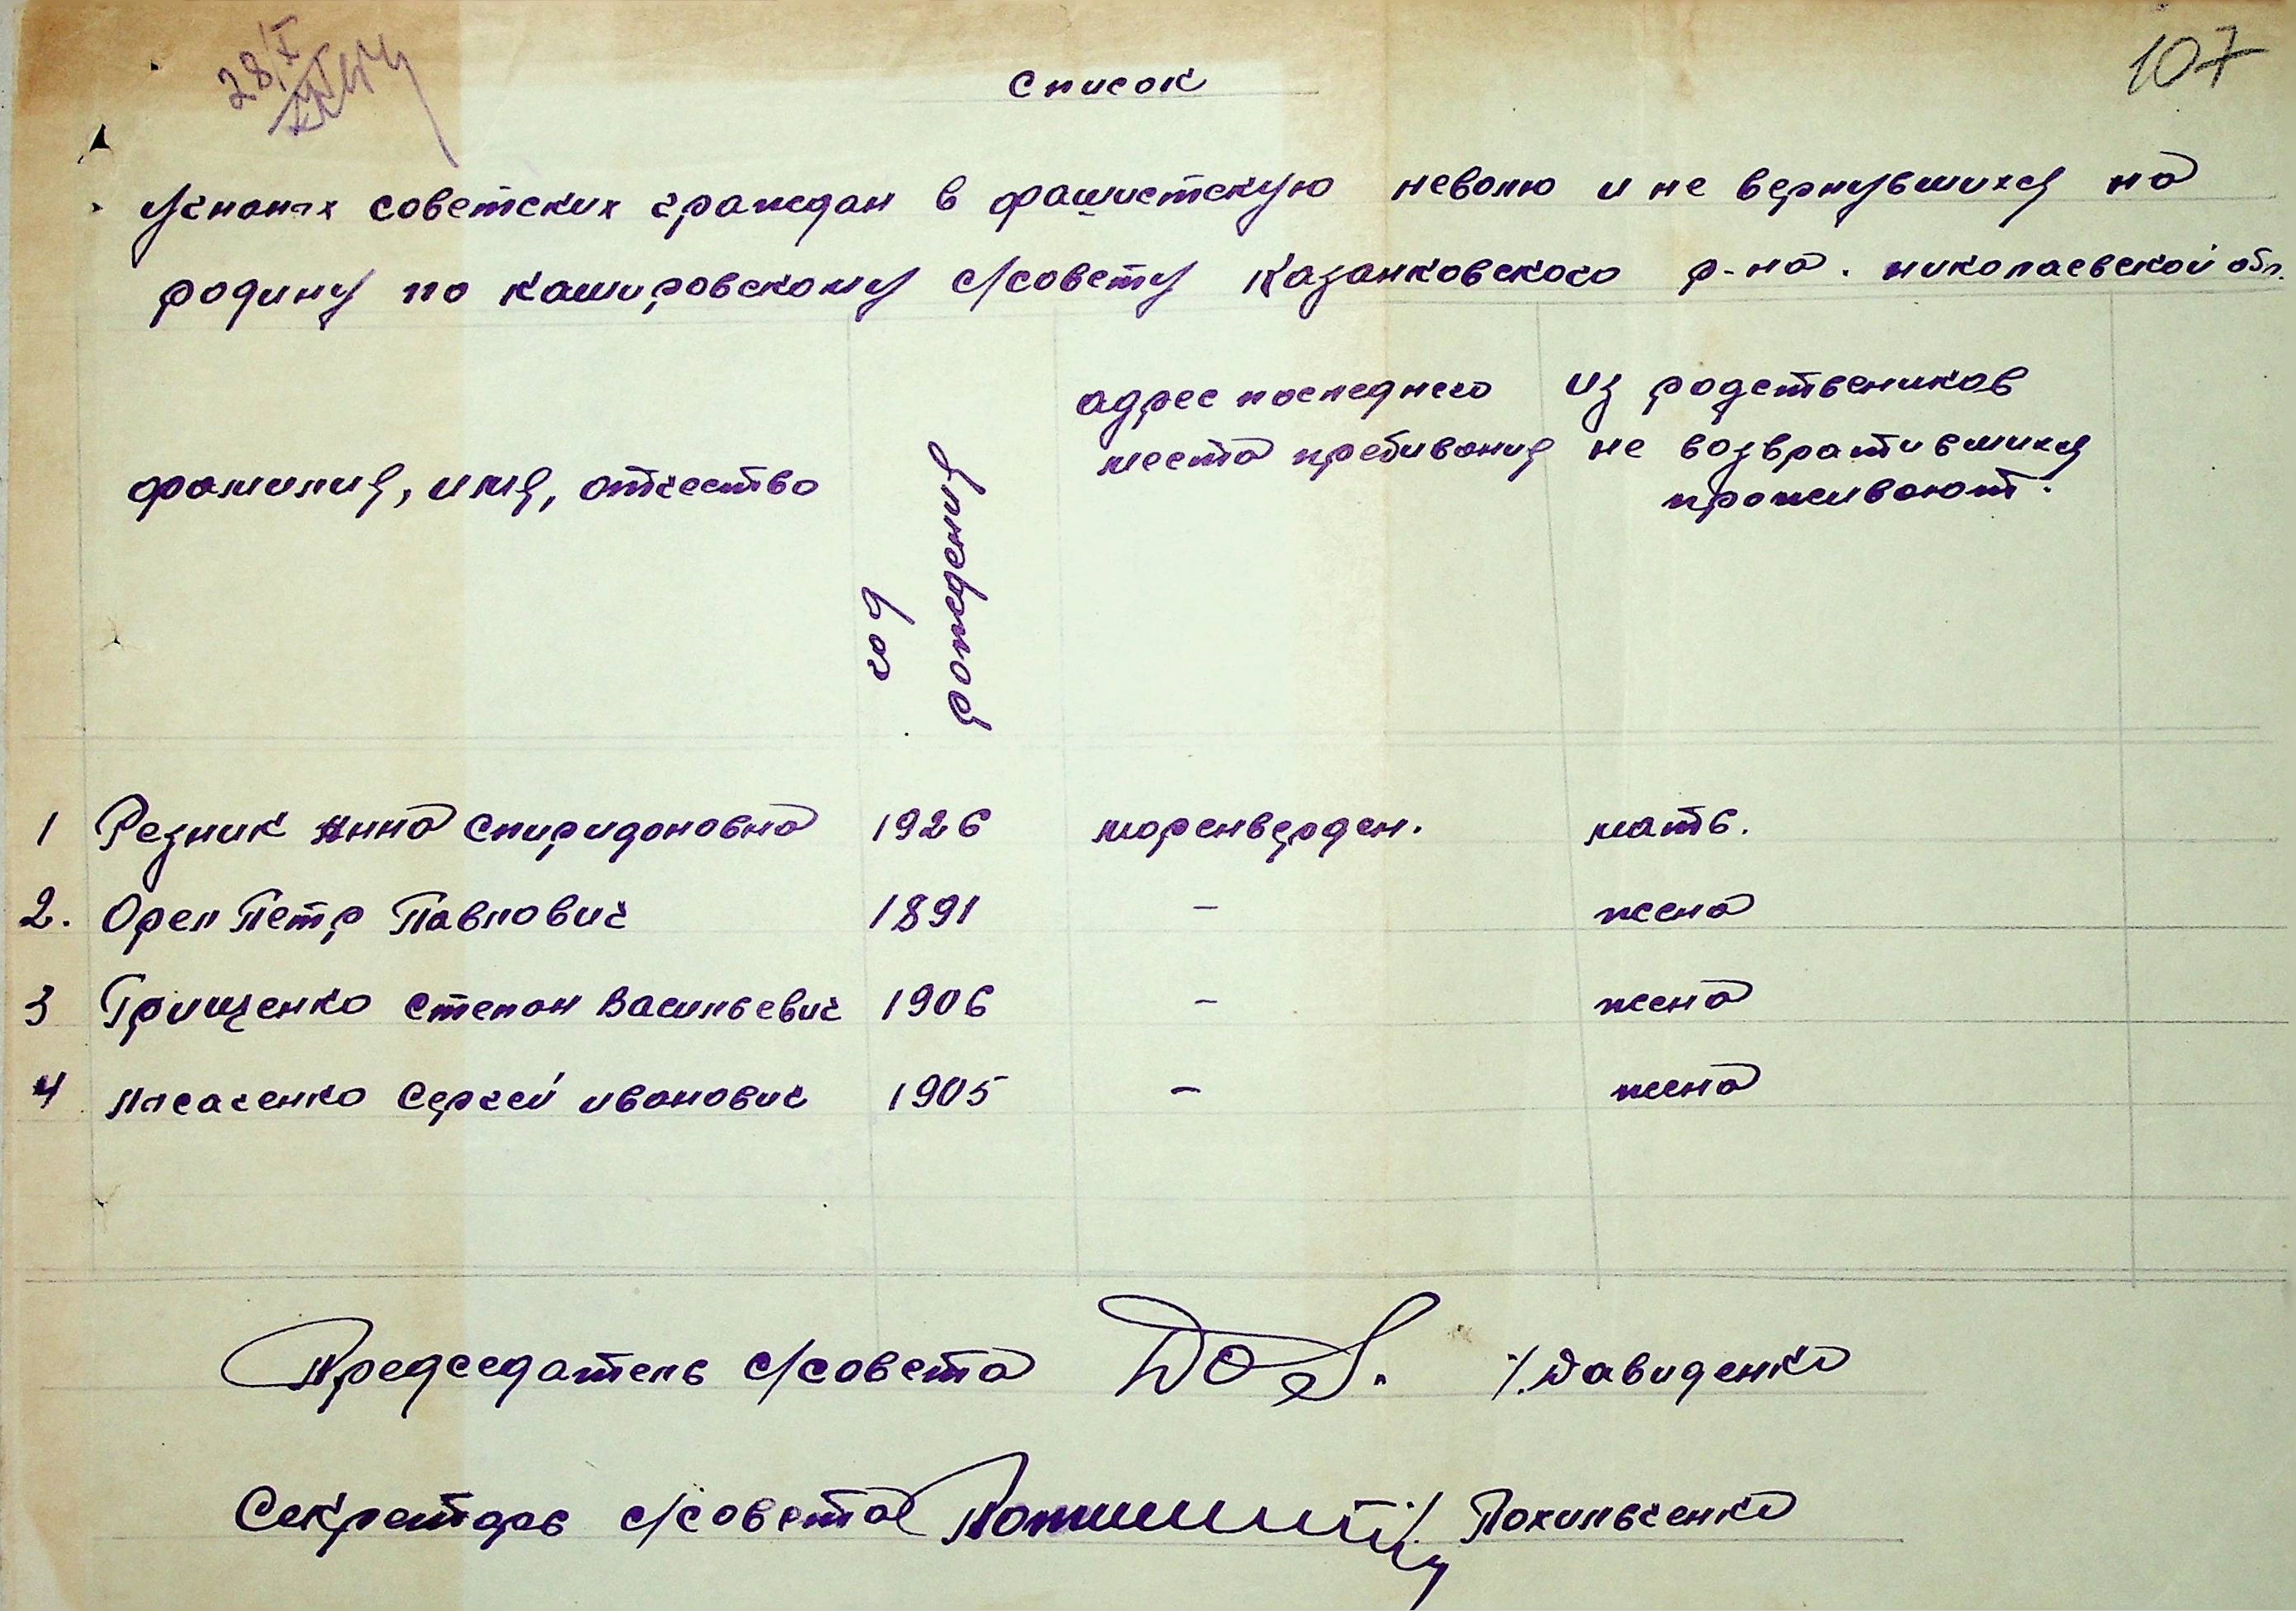 107
Список
угнаных советских граждан в фашистскую неволю и не вернувшихся на
родину по Кашировскому с/совету Казанковского р-на. николаевской обл.
фамилия, имя, отчество
год рождения
адрес последнего
места пребивания
из родствеников
не возвратившихся
проживают.
1 Резник Нина Спиридоновна 1926 моренверден. мать.
2. Орел Петр Павлович 1891 – жена
3 Грищенко Степан Васильевич 1906 – жена
4 Пасаченко Сергей иванович 1905 – жена
Председатель с/совета /. Давиденко
Секретарь с/совета / Похильченко